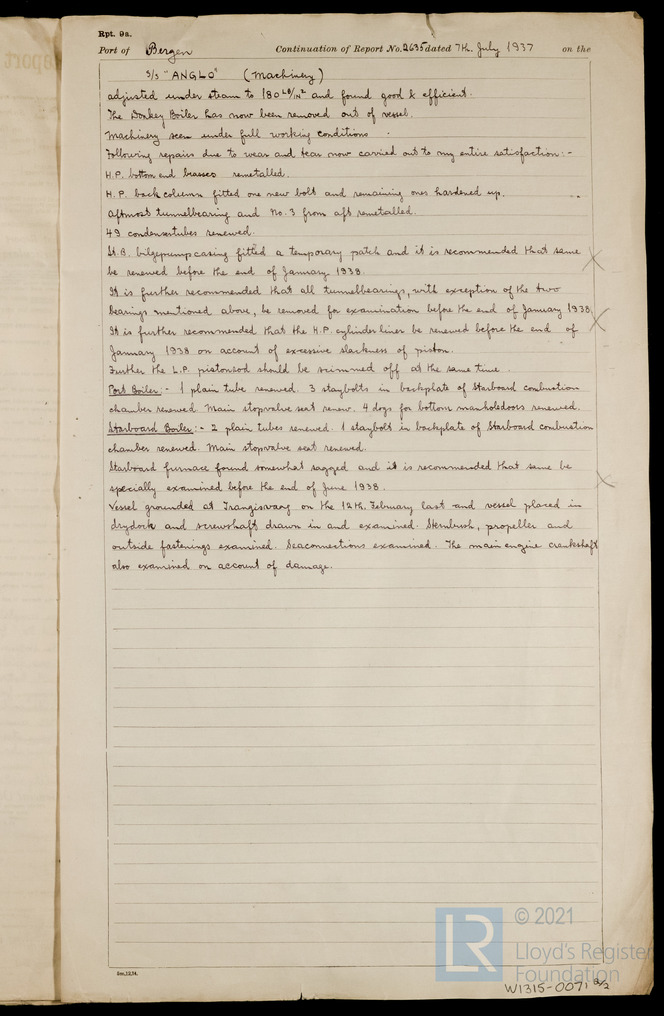 Rpt. 9a.
Port of Bergen Continuation of Report No. 2635 dated 7th. July 1937 on the
S/S "ANGLO" (Machinery)
adjusted under steam to 180 LB/IN² and found good & efficient.
The Donkey Boiler has now been removed out of vessel.
Machinery seen under full working conditions.
Following repairs due to wear and tear now carried out to my entire satisfaction:-
H.P. bottom end brasses remetalled.
H.P. back column fitted one new bolt and remaining ones hardened up.
Aftmost tunnelbearing and No. 3 from aft remetalled.
49 condensertubes renewed.
St.B. bilgepumpcasing fitted a temporary patch and it is recommended that same
be renewed before the end of January 1938.
It is further recommended that all tunnelbearings, with exception of the two
bearings mentioned above, be removed for examination before the end of January 1938.
It is further recommended that the H.P. cylinder liner be renewed before the end of
January 1938 on account of excessive slackness of piston.
Further the L.P. pistonrod should be skimmed off at the same time.
Port Boiler:- 1 plain tube renewed. 3 staybolts in backplate of Starboard combustion
chamber renewed. Main stopvalve seat renew. 4 dogs for bottom manholedoors renewed.
Starboard Boiler:- 2 plain tubes renewed. 1 staybolt in backplate of Starboard combustion
chamber renewed. Main stopvalve seat renewed.
Starboard furnace found somewhat sagged and it is recommended that same be
specially examined before the end of June 1938.
Vessel grounded at Trangisvaag on the 12th. February last and vessel placed in
drydock and screwshaft drawn in and examined. Sternbush, propeller and
outside fastenings examined. Seaconnections examined. The main engine crankshaft
also examined on account of damage.
© 2021
LR
Lloyd's Register
Foundation
W1315-0071 2/2